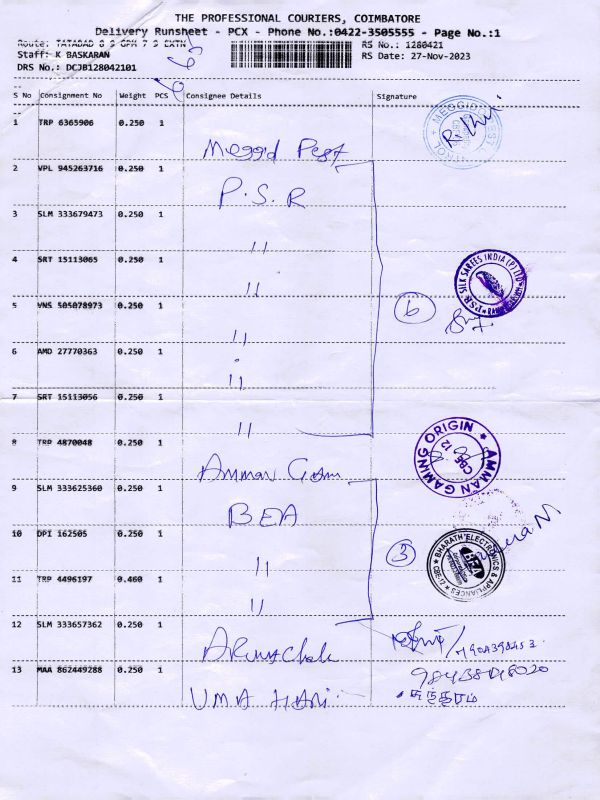 THE PROFESSIONAL COURIERS, COIMBATORE
Delivery Runsheet - PCX - Phone No.:0422-3505555 - Page No.:1
Route: TATABAD 8 9 GPM 7 9 EXTN
RS No.: 1280421
Staff: K BASKARAN
RS Date: 27-Nov-2023
DRS No.: DCJB128042101
S No Consignment No Weight PCS Consignee Details Signature
1 TRP 6365906 0.250 1
Meggid Pest
2 VPL 945263716 0.250 1
P.S.R
3 SLM 333679473 0.250 1
"
4 SRT 15113065 0.250 1
"
5 VNS 505078973 0.250 1
"
6 AMD 27770363 0.250 1
"
7 SRT 15113056 0.250 1
"
8 TRP 4870048 0.250 1
Amman Gam.
9 SLM 333625360 0.250 1
BEA
10 DPI 162505 0.250 1
"
11 TRP 4496197 0.460 1
"
12 SLM 333657362 0.250 1
Arunachala
13 MAA 862449288 0.250 1
UMA HARI
PSR SILK SAREES INDIA (P) LTD
6
AMMAN GAMING ORIGIN
CBE 12
3
BHARATH ELECTRONICS & APPLIANCES
BEA
CBE-12